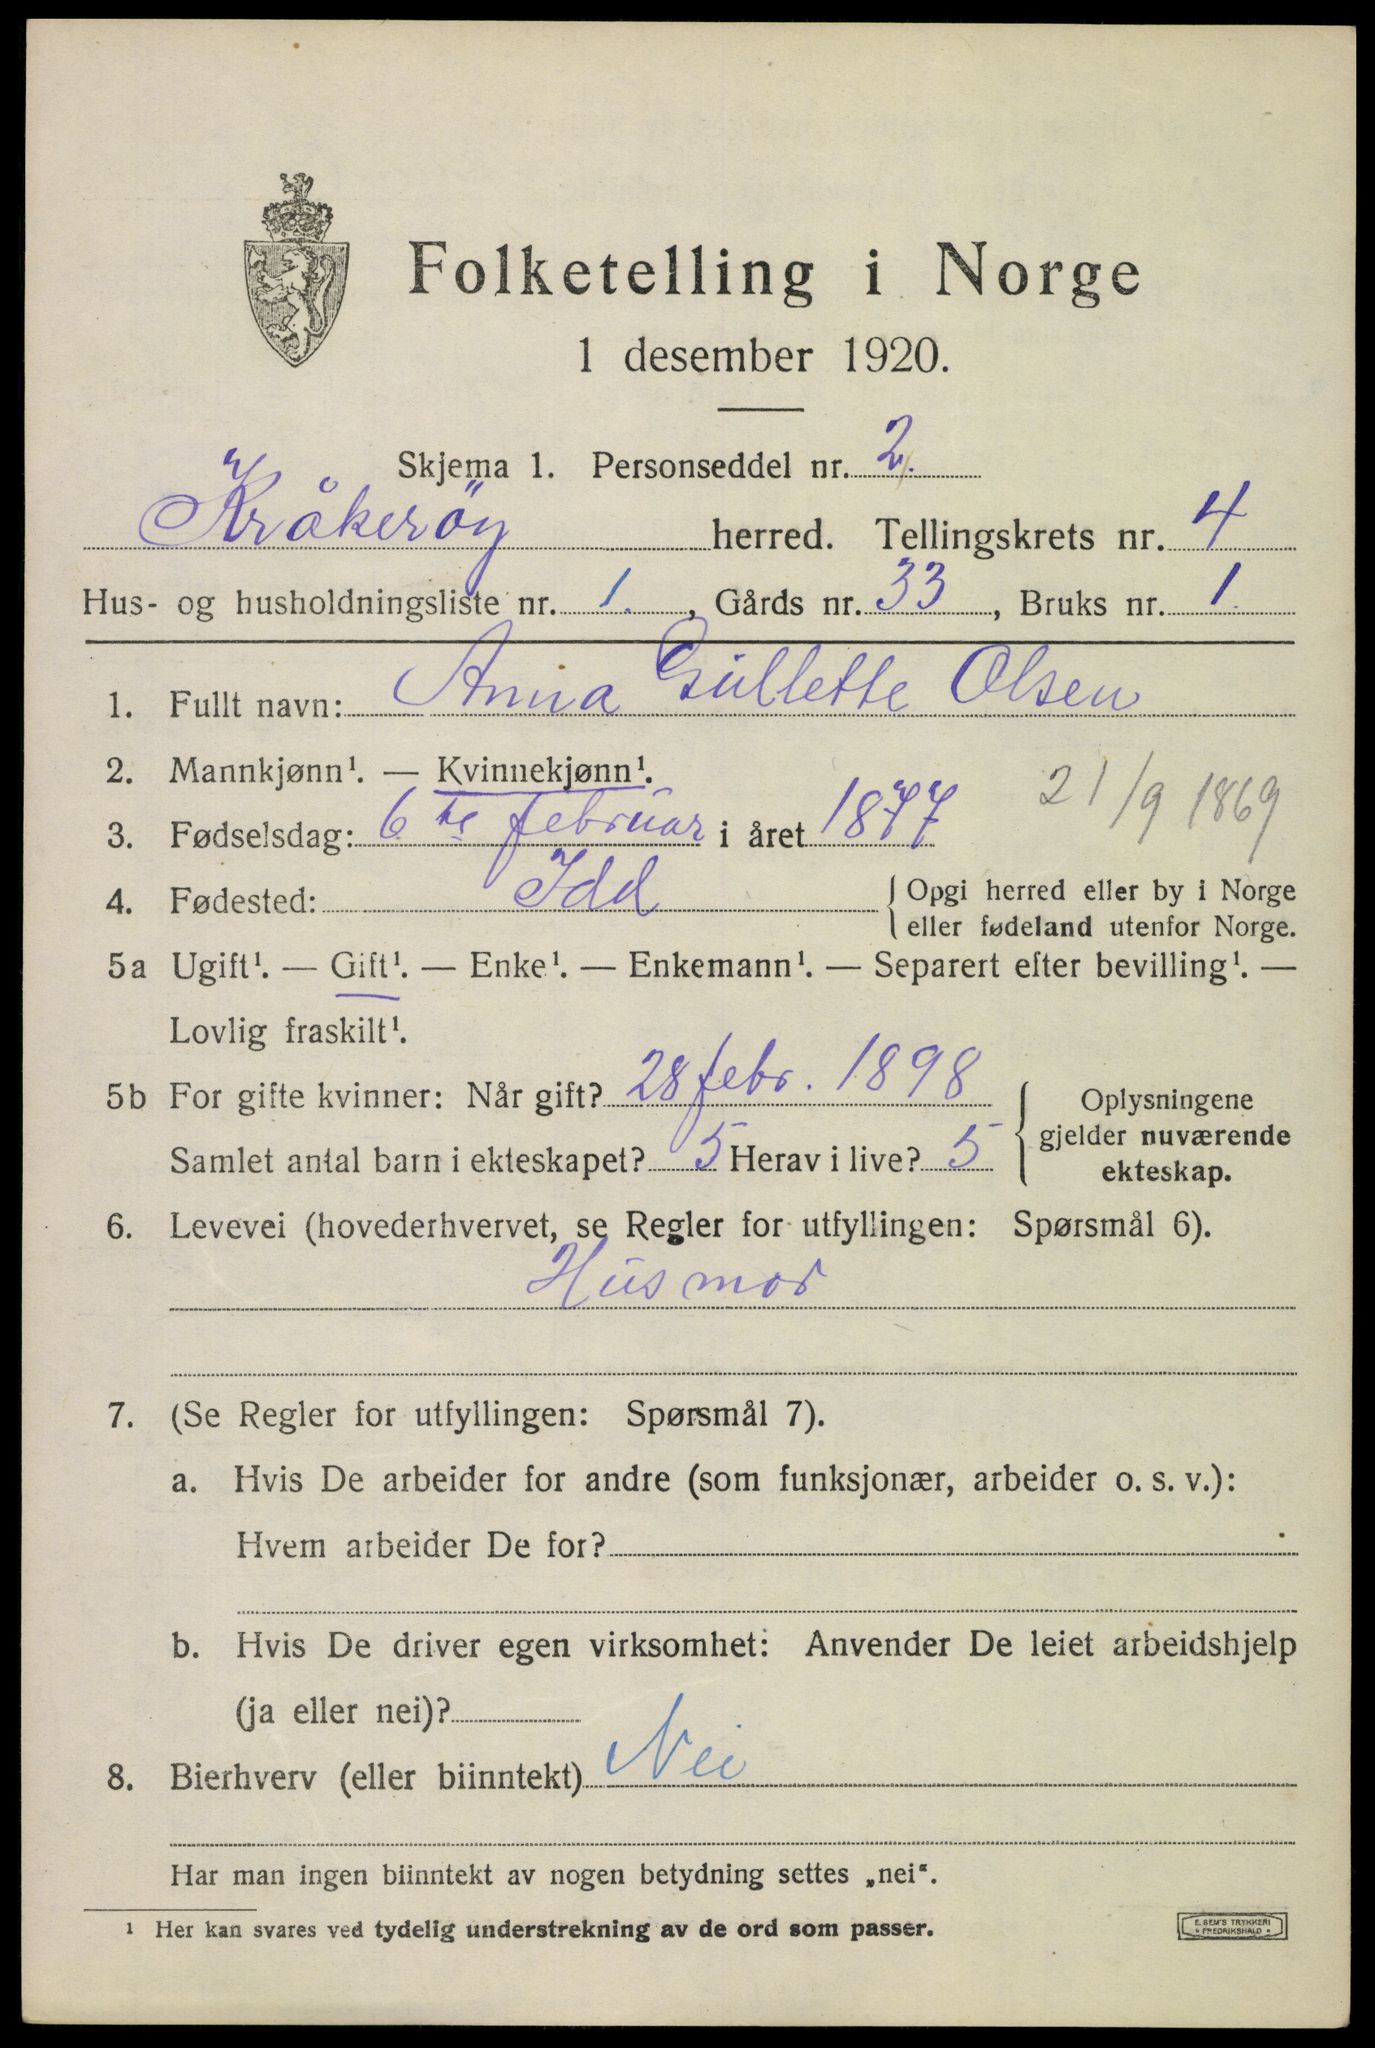 Folketelling i Norge
1 desember 1920.
Skjema 1. Personseddel nr. 2.
Kråkeröy herred. Tellingskrets nr. 4
Hus- og husholdningsliste nr. 1., Gårds nr. 33, Bruks nr. 1.
1. Fullt navn: Anna Gullette Olsen
2. Mannkjønn¹. — Kvinnekjønn¹.
3. Fødselsdag: 6te februar i året 1877 21/9 1869
4. Fødested: Idd { Opgi herred eller by i Norge
eller fødeland utenfor Norge.
5a Ugift¹. — Gift¹. — Enke¹. — Enkemann¹. — Separert efter bevilling¹. —
Lovlig fraskilt¹.
5b For gifte kvinner: Når gift? 28 febr. 1898 { Oplysningene
Samlet antal barn i ekteskapet? 5 Herav i live? 5 gjelder nuværende
ekteskap.
6. Levevei (hovederhvervet, se Regler for utfyllingen: Spørsmål 6).
Husmor
7. (Se Regler for utfyllingen: Spørsmål 7).
a. Hvis De arbeider for andre (som funksjonær, arbeider o. s. v.):
Hvem arbeider De for?
b. Hvis De driver egen virksomhet: Anvender De leiet arbeidshjelp
(ja eller nei)?
8. Bierhverv (eller biinntekt) Nei
Har man ingen biinntekt av nogen betydning settes „nei“.
¹ Her kan svares ved tydelig understrekning av de ord som passer.
E. SEM'S TRYKKERI
* FREDRIKSHALD *